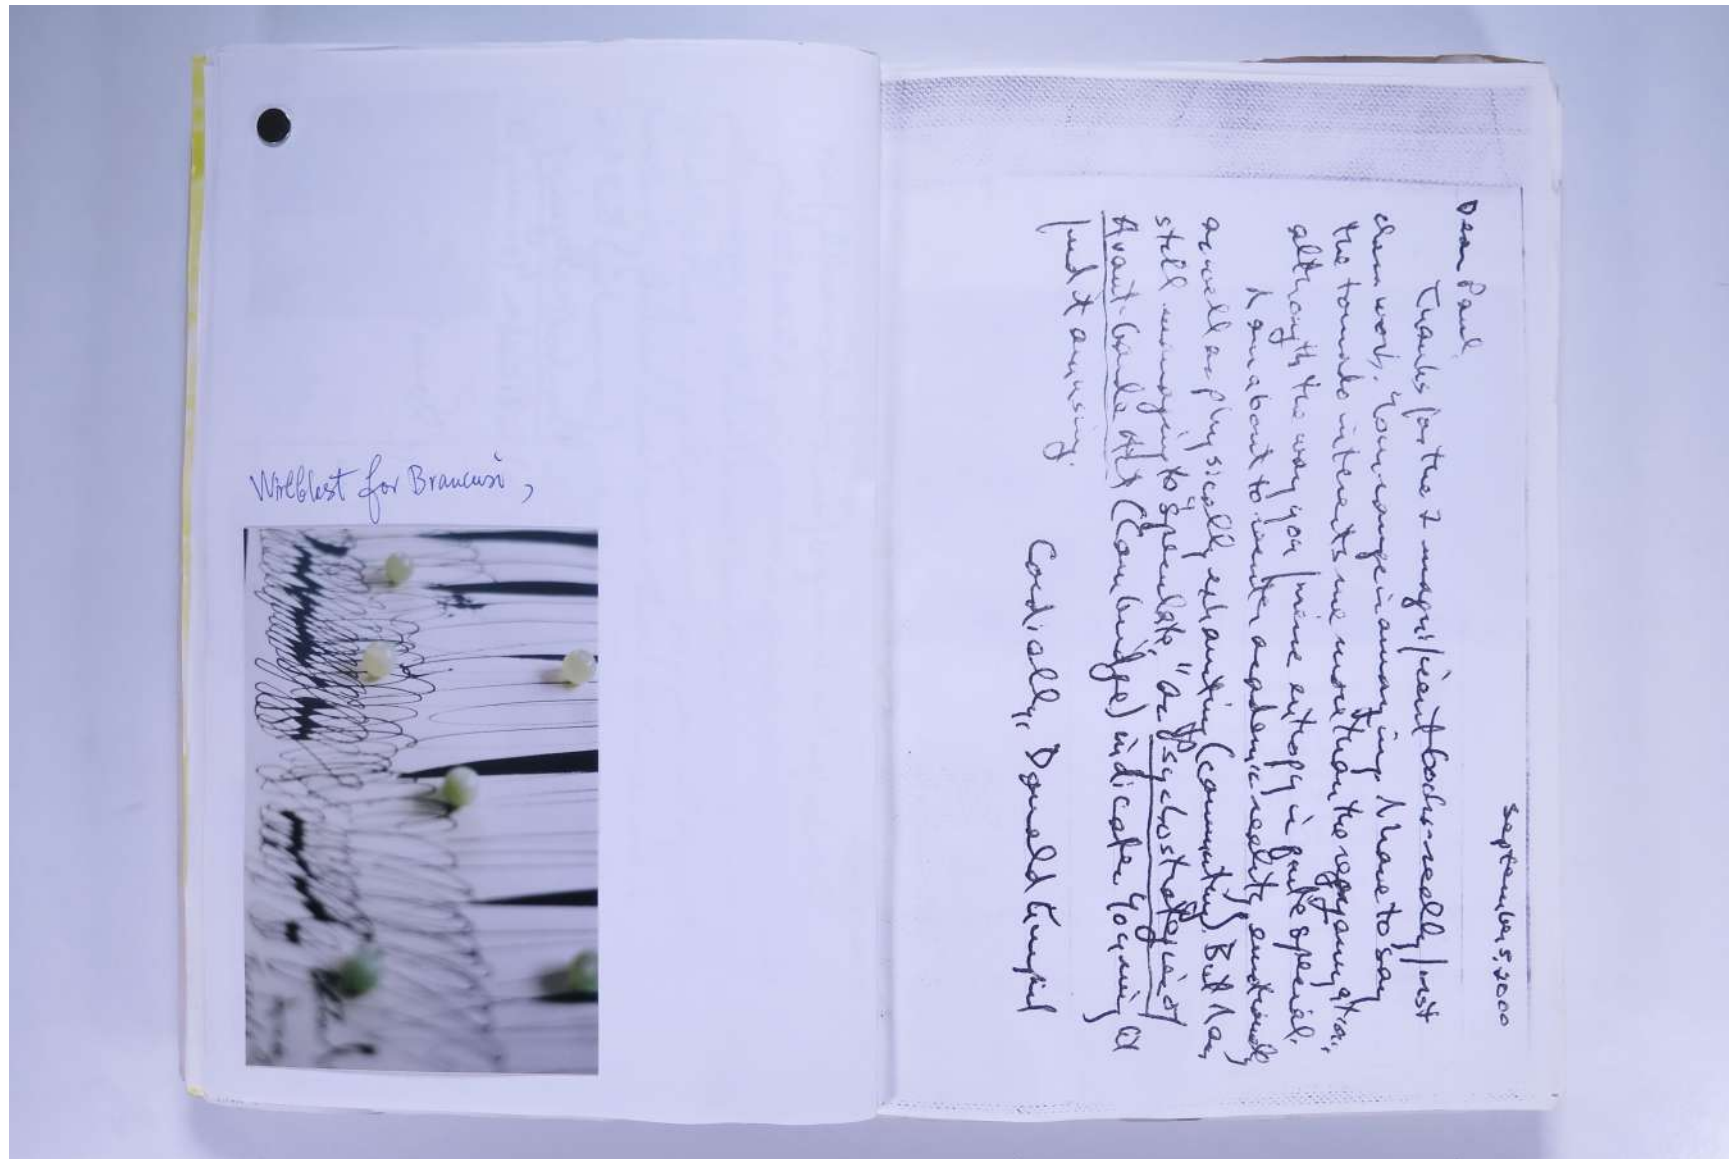 for Brancusi,
September 5, 2000
Dear Paul,
Thanks for the 2 magnificent books—really first
class work. Your range is amazing. I have to say
the tornado interests me more than the
although the way you frame entropy is quite special.
I am about to academic reality, emotionally
as well as physically exhausting (commuting). But I am
still managing to "speculate," as Psychostrategies of
Avant-Garde Art (Cambridge) indicates. You might
find it amusing.
Cordially, Donald Kuspit